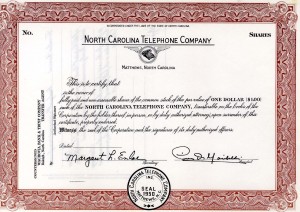 INCORPORATED UNDER THE LAWS OF THE STATE OF NORTH CAROLINA
No.
SHARES
NORTH CAROLINA TELEPHONE COMPANY
MATTHEWS, NORTH CAROLINA
This is to certify that
is the owner of
fully paid and non-assessable shares of the common stock of the par value of ONE DOLLAR ($1.00)
each of the NORTH CAROLINA TELEPHONE COMPANY, transferable on the books of the
Corporation by the holder thereof, in person, or by duly authorized attorney, upon surrender of this
certificate, properly endorsed.
Witness the seal of the Corporation and the signatures of its duly authorized officers.
Dated
COUNTERSIGNED
WACHOVIA BANK & TRUST COMPANY
TRANSFER AGENT
Margaret L.
NORTH CAROLINA TELEPHONE COMPANY
INC.
SEAL
1950